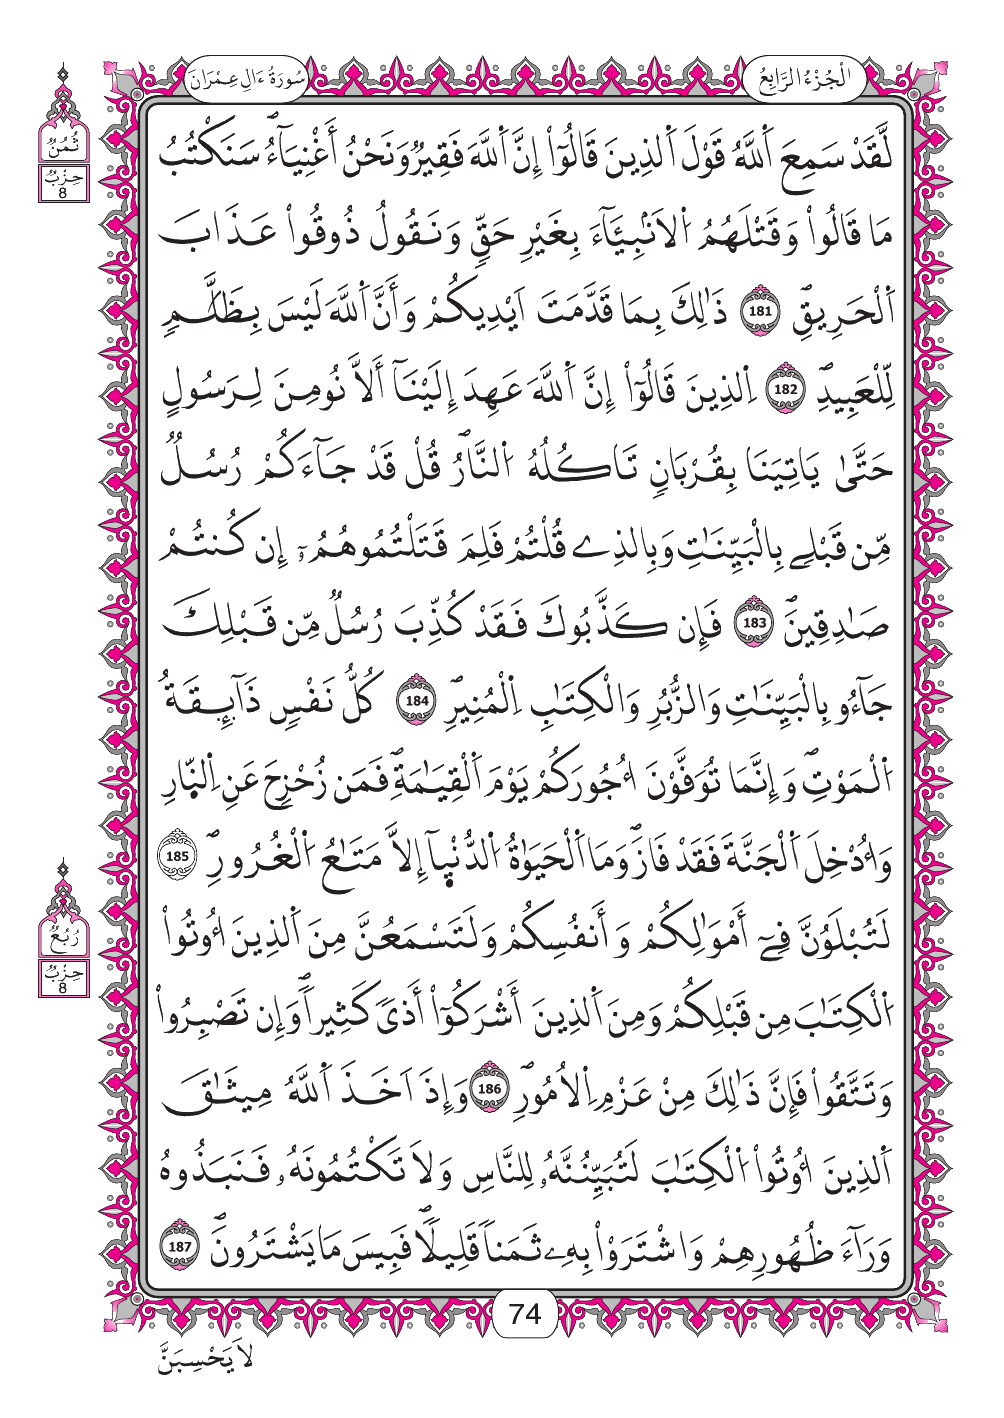 الْجُزْءُ الرَّابِعُ
سُورَةُ ءَالِ عِمْرَانَ
ثُمُنُ
حِزْبُ
8
لَّقَدْ سَمِعَ اَ۬للَّهُ قَوْلَ اَ۬لذِينَ قَالُوٓاْ إِنَّ اَ۬للَّهَ فَقِيرٞ وَنَحْنُ أَغْنِيَآءُۖ سَنَكْتُبُ
مَا قَالُواْ وَقَتْلَهُمُ اُ۬لَانۢبِيَّآءَ بِغَيْرِ حَقّٖ وَنَقُولُ ذُوقُواْ عَذَابَ
اَ۬لْحَرِيقِۖ 181 ذَٰلِكَ بِمَا قَدَّمَتَ اَيْدِيكُمْ وَأَنَّ اَ۬للَّهَ لَيْسَ بِظَلَّٰمٖ
لِّلْعَبِيدِۖ 182 اِ۬لذِينَ قَالُوٓاْ إِنَّ اَ۬للَّهَ عَهِدَ إِلَيْنَآ أَلَّا نُومِنَ لِرَسُولٍ
حَتَّىٰ يَاتِيَنَا بِقُرْبَانٖ تَاكُلُهُ اُ۬لنَّارُۖ قُلْ قَدْ جَآءَكُمْ رُسُلٞ
مِّن قَبْلِے بِالْبَيِّنَٰتِ وَبِالذِے قُلْتُمْ فَلِمَ قَتَلْتُمُوهُمُۥٓ إِن كُنتُمْ
صَٰدِقِينَۖ 183 فَإِن كَذَّبُوكَ فَقَدْ كُذِّبَ رُسُلٞ مِّن قَبْلِكَ
جَآءُو بِالْبَيِّنَٰتِ وَالزُّبُرِ وَالْكِتَٰبِ اِ۬لْمُنِيرِۖ 184 كُلُّ نَفْسٖ ذَآئِقَةُ
اُ۬لْمَوْتِۖ وَإِنَّمَا تُوَفَّوْنَ أُجُورَكُمْ يَوْمَ اَ۬لْقِيَٰمَةِۖ فَمَن زُحْزِحَ عَنِ اِ۬لنّ۪ارِ
وَأُدْخِلَ اَ۬لْجَنَّةَ فَقَدْ فَازَۖ وَمَا اَ۬لْحَيَوٰةُ اُ۬لدُّنْي۪آ إِلَّا مَتَٰعُ اُ۬لْغُرُورِۖ 185
لَتُبْلَوُنَّ فِےٓ أَمْوَٰلِكُمْ وَأَنفُسِكُمْ وَلَتَسْمَعُنَّ مِنَ اَ۬لذِينَ أُوتُواْ
اُ۬لْكِتَٰبَ مِن قَبْلِكُمْ وَمِنَ اَ۬لذِينَ أَشْرَكُوٓاْ أَذىٗ كَثِيراٗۖ وَإِن تَصْبِرُواْ
وَتَتَّقُواْ فَإِنَّ ذَٰلِكَ مِنْ عَزْمِ اِ۬لُامُورِۖ 186 وَإِذَ اَخَذَ اَ۬للَّهُ مِيثَٰقَ
اَ۬لذِينَ أُوتُواْ اُ۬لْكِتَٰبَ لَتُبَيِّنُنَّهُۥ لِلنَّاسِ وَلَا تَكْتُمُونَهُۥ فَنَبَذُوهُ
وَرَآءَ ظُهُورِهِمْ وَاشْتَرَوْاْ بِهِۦ ثَمَناٗ قَلِيلاٗۖ فَبِيسَ مَا يَشْتَرُونَۖ 187
رُبُعُ
حِزْبُ
8
74
لَا يَحْسِبَنَّ